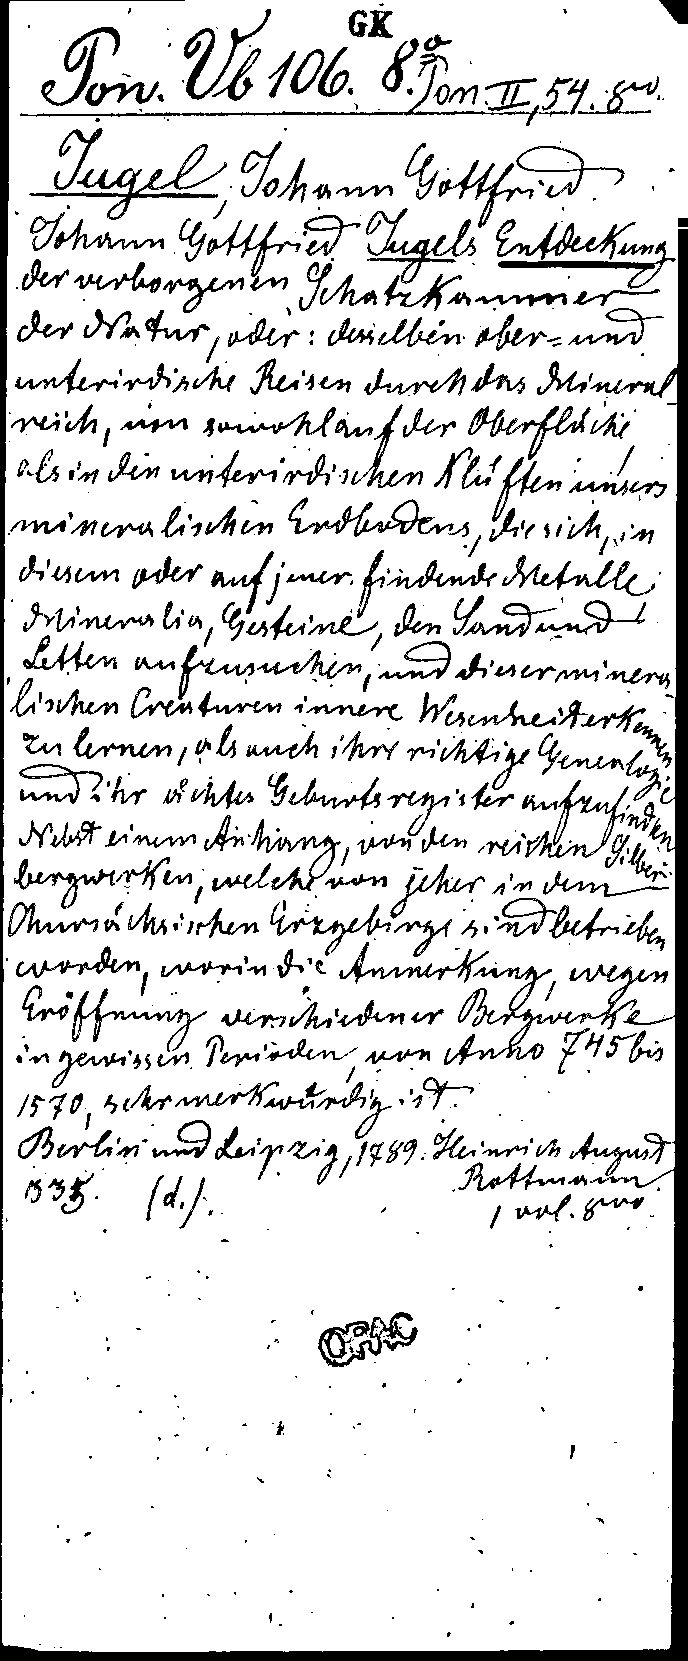 GK
Pon. Vb 106. 8º
Pon. II, 54. 8vo.
Jugel, Johann Gottfried.
Johann Gottfried Jugels Entdeckung
der verborgenen Schatzkammer
der Natur, oder: desselben ober= und
unterirdische Reisen durch das Mineral-
reich, um sowohl auf der Oberfläche,
als in den unterirdischen Klüften unsers
mineralischen Erdbodens, die sich, in
diesem oder auf jener findende Metalle,
Mineralia, Gesteine, den Sand und
Letten aufzusuchen, und dieser minera-
lischen Creaturen innere Wesenheit erkennen
zu lernen, als auch ihre richtige Genealogie
und ihr ächtes Geburtsregister aufzufinden
Nebst einem Anhang, von den reichen Silber-
bergwerken, welche von jeher in dem
Chursächsischen Erzgebirge sind betrieben
worden, worin die Anmerkung, wegen
Eröffnung verschiedener Bergwerke
in gewissen Perioden, von Anno 745 bis
1570, sehr merkwürdig ist.
Berlin und Leipzig, 1789. Heinrich August
Rottmann.
(d.).
1 vol. 8vo.
OPAC